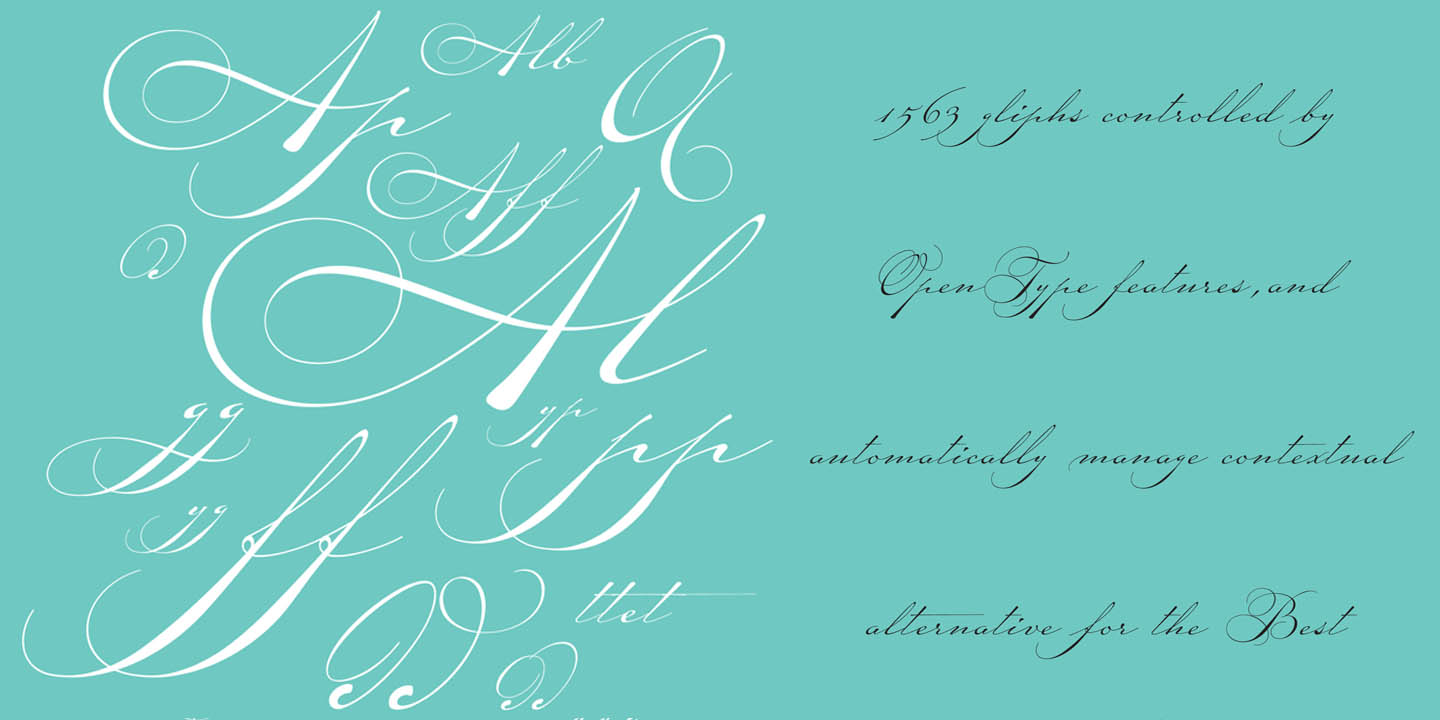 Ap
Alb
Q
Aff
Al
gg
yp
pp
yg
ff
ttet
1563 gliphs controlled by
OpenType features, and
automatically manage contextual
alternative for the Best